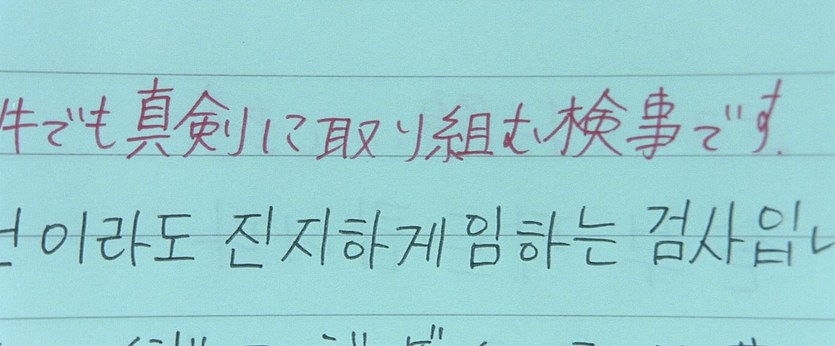 件でも真剣に取り組む検事です.
이라도 진지하게 임하는 검사입니